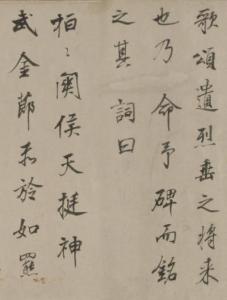 歌頌遺烈垂之將来
也乃命予碑而銘
之其詞曰
桓〻闗侯天挺神
武金節赤旂如羆